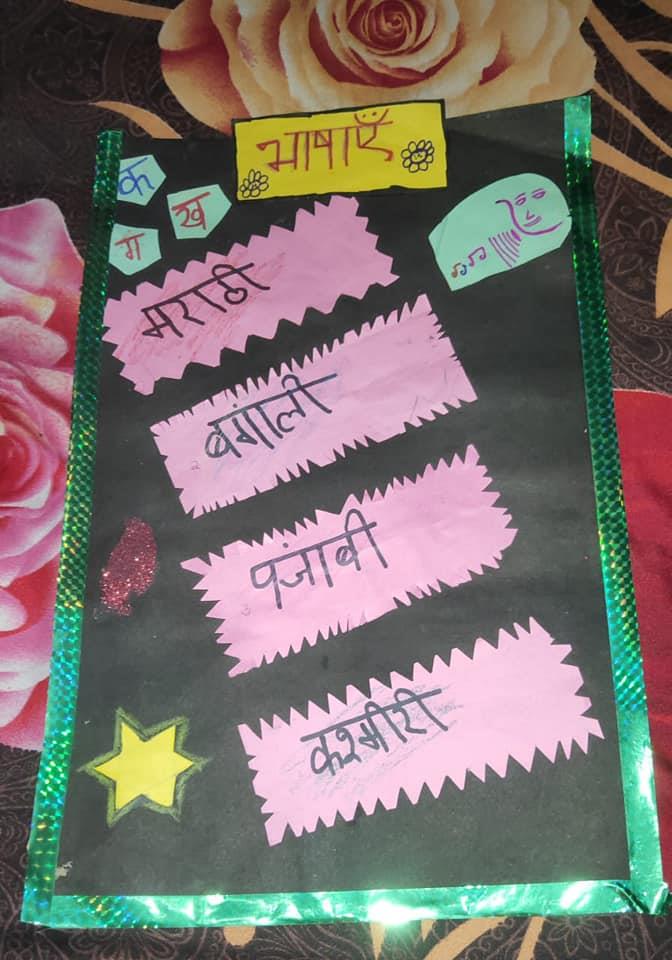 भाषाएँ
क
ख
ग
मराठी
बंगाली
पंजाबी
कश्मीरी